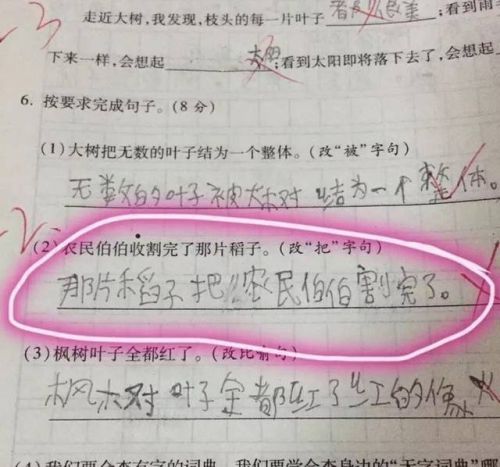 走近大树,我发现,枝头的每一片叶子;看到雨
下来一样,会想起太阳;看到太阳即将落下去了,会想起
6. 按要求完成句子。(8 分)
(1)大树把无数的叶子结为一个整体。(改“被”字句)
无数的叶子被大树结为一个整体。
(2)农民伯伯收割完了那片稻子。(改“把”字句)
那片稻子把农民伯伯割完了。
(3)枫树叶子全都红了。(改比喻句)
枫树叶子全都红了红的像火